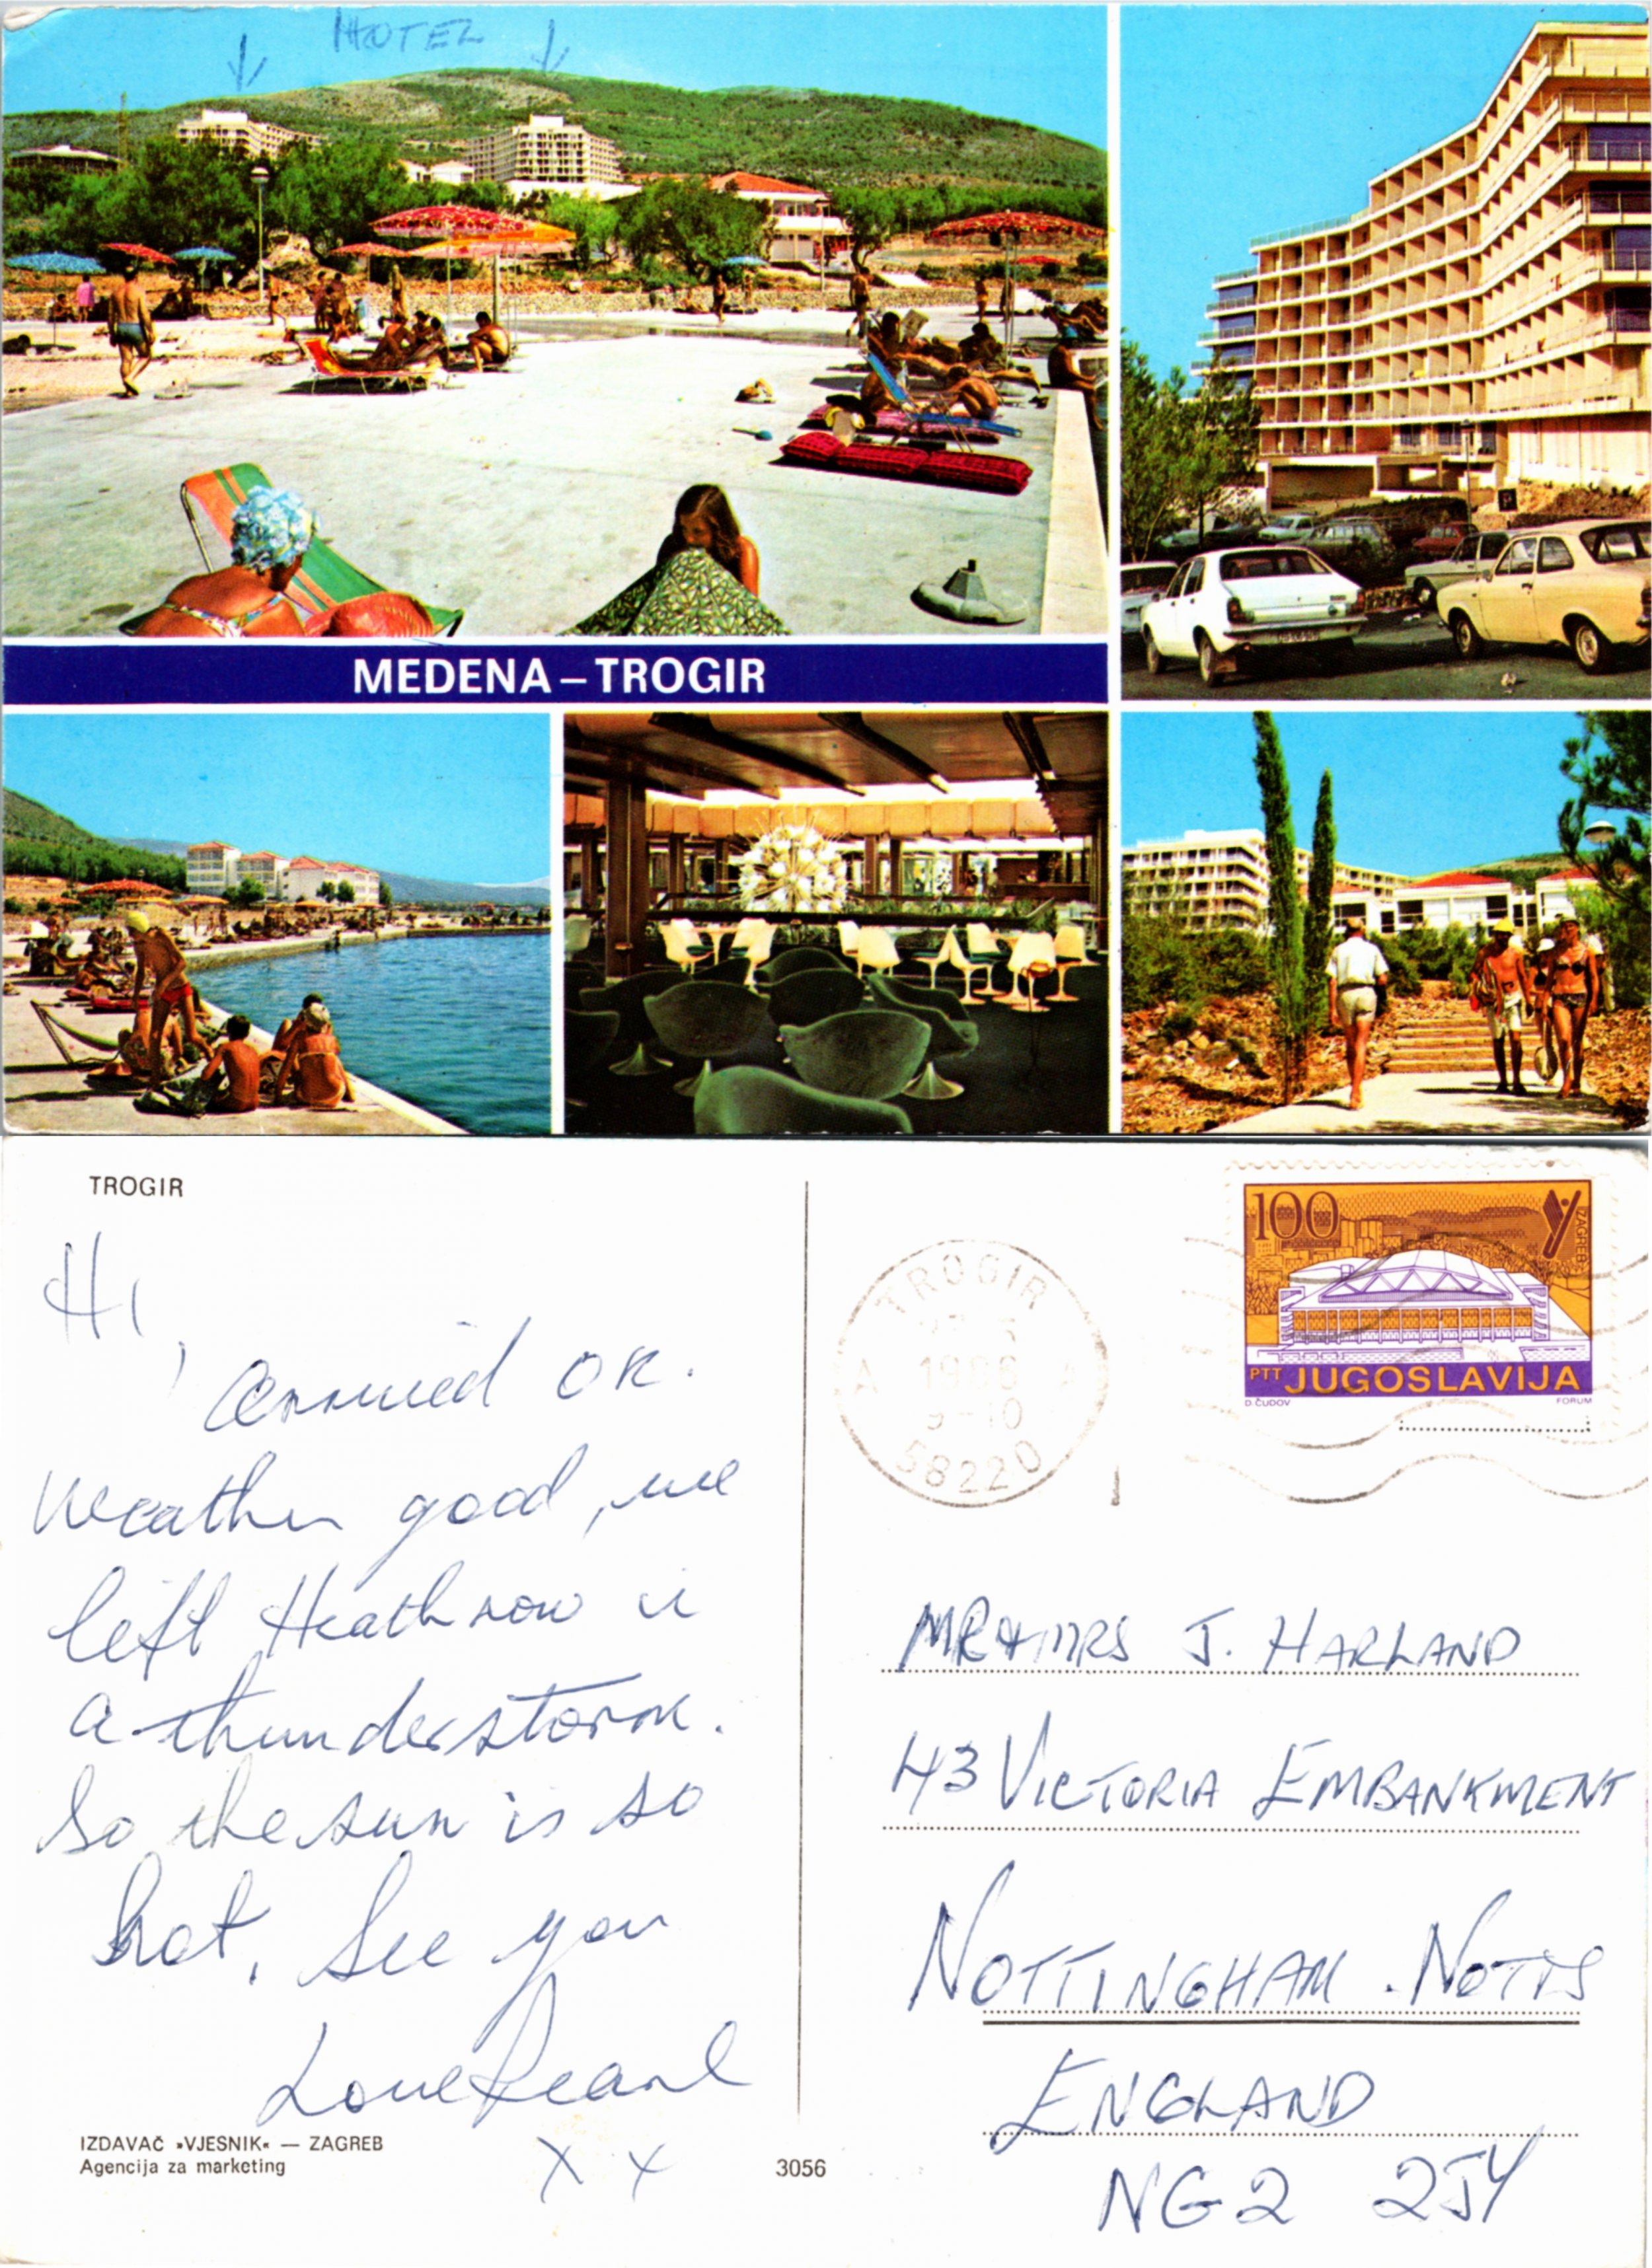 HOTEL
MEDENA – TROGIR
TROGIR
Hi,
Arrived OK.
Weather good, we
left Heathrow in
a thunderstorm.
So the sun is so
hot. See you
Love Pearl
X X
IZDAVAČ »VJESNIK« — ZAGREB
Agencija za marketing
3056
TROGIR
1986
9-10
58220
A
100
ZAGREB
PTT JUGOSLAVIJA
D. ČUDOV FORUM
MR & MRS J. HARLAND
43 VICTORIA EMBANKMENT
NOTTINGHAM. NOTTS
ENGLAND
NG2 2JY